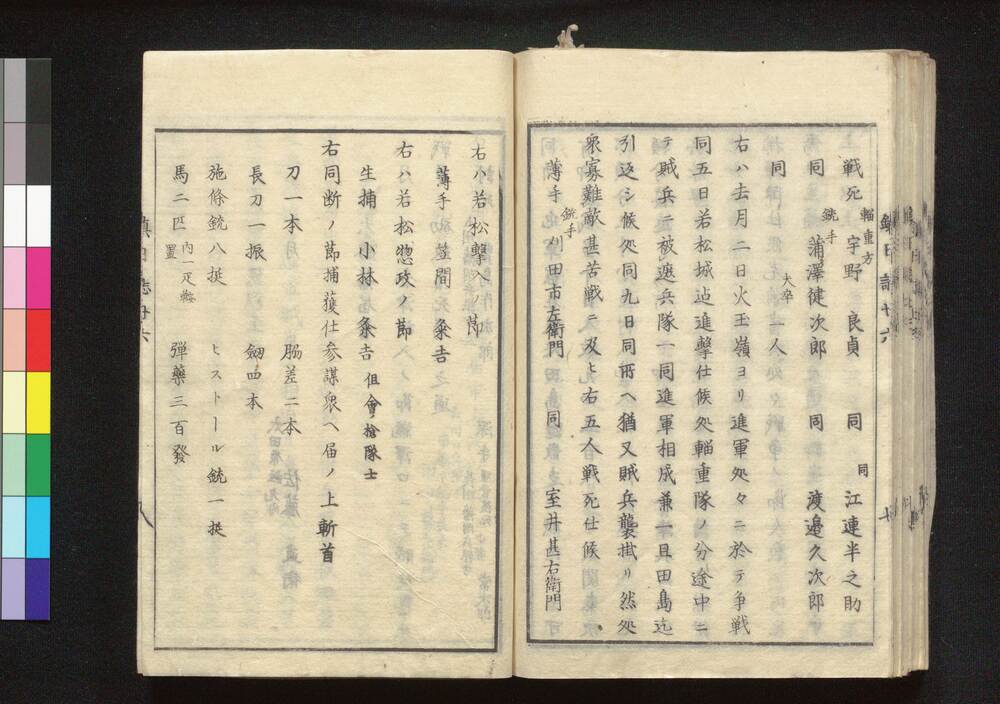 戦死 輜重方 宇野良貞 同 同 江連半之助
同 銃手 蒲澤健次郎 同 渡邉久次郎
同 夫卒 一人
右ハ去月二日火玉嶺ヨリ進軍処々ニ於テ争戦
同五日若松城迠進撃仕候処輜重隊ノ分途中ニ
テ賊兵ニ被遮兵隊一同進軍相成兼一旦田島迠
引返シ候処同九日同所へ猶又賊兵襲掛リ然処
衆寡難敵甚苦戦ニ及ヒ右五人戦死仕候
薄手 銃手 刈田市左衛門 同 室井甚右衛門
右ハ若松撃入ノ節
薄手 笠間元粂吉
右ハ若松惣攻ノ節
生捕 小林粂吉 但會槍隊士
右同断ノ節捕獲仕参謀衆へ届ノ上斬首
刀一本 脇差二本
長刀一振 劔四本
施條銃八挺 ヒストール銃一挺
馬二匹 内一疋鞍置 弾藥三百發